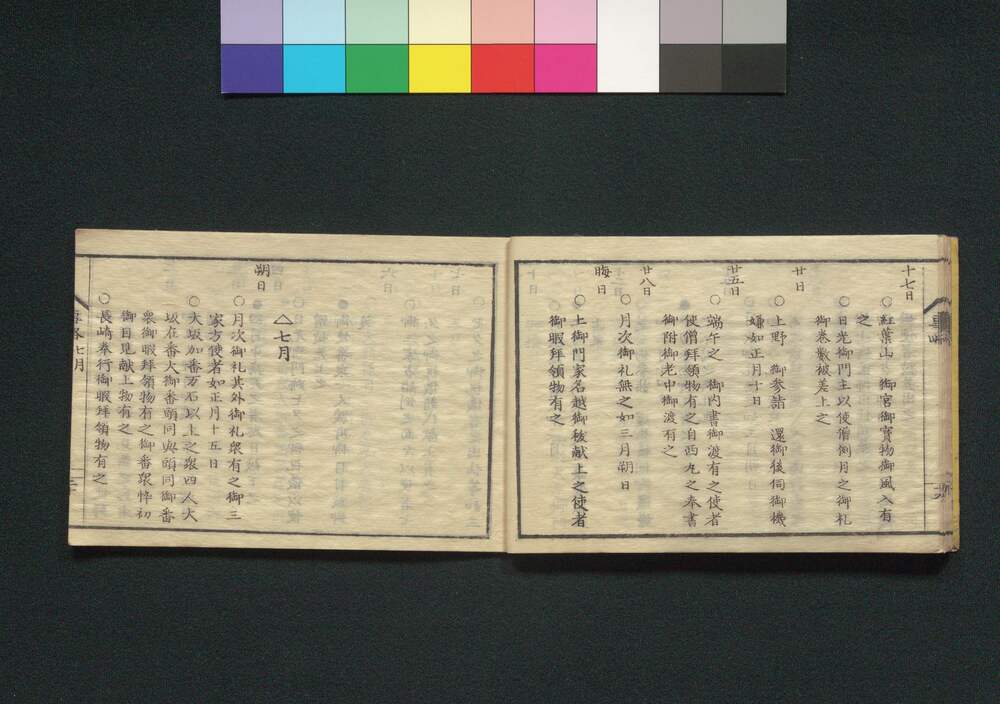 十七日
○紅葉山 御宮御寳物御風入有
之
○日光御門主以使僧例月之御札
御巻数被差上之
廿日
○上野 御参詣 還御後伺御機
嫌如正月十日
廿五日
○端午之 御内書御渡有之使者
使僧拜領物有之自西丸之奉書
御附御老中御渡有之
廿八日
○月次御礼無之如三月朔日
晦日
○土御門家名越御祓献上之使者
御暇拜領物有之
△七月
朔日
○月次御礼其外御礼衆有之御三
家方使者如正月十五日
○大坂加番万石以上之衆四人大
坂在番大御番頭同與頭同御番
衆御暇拜領物有之御番衆悴初
御目見献上物有之
○長崎奉行御暇拜領物有之
七月